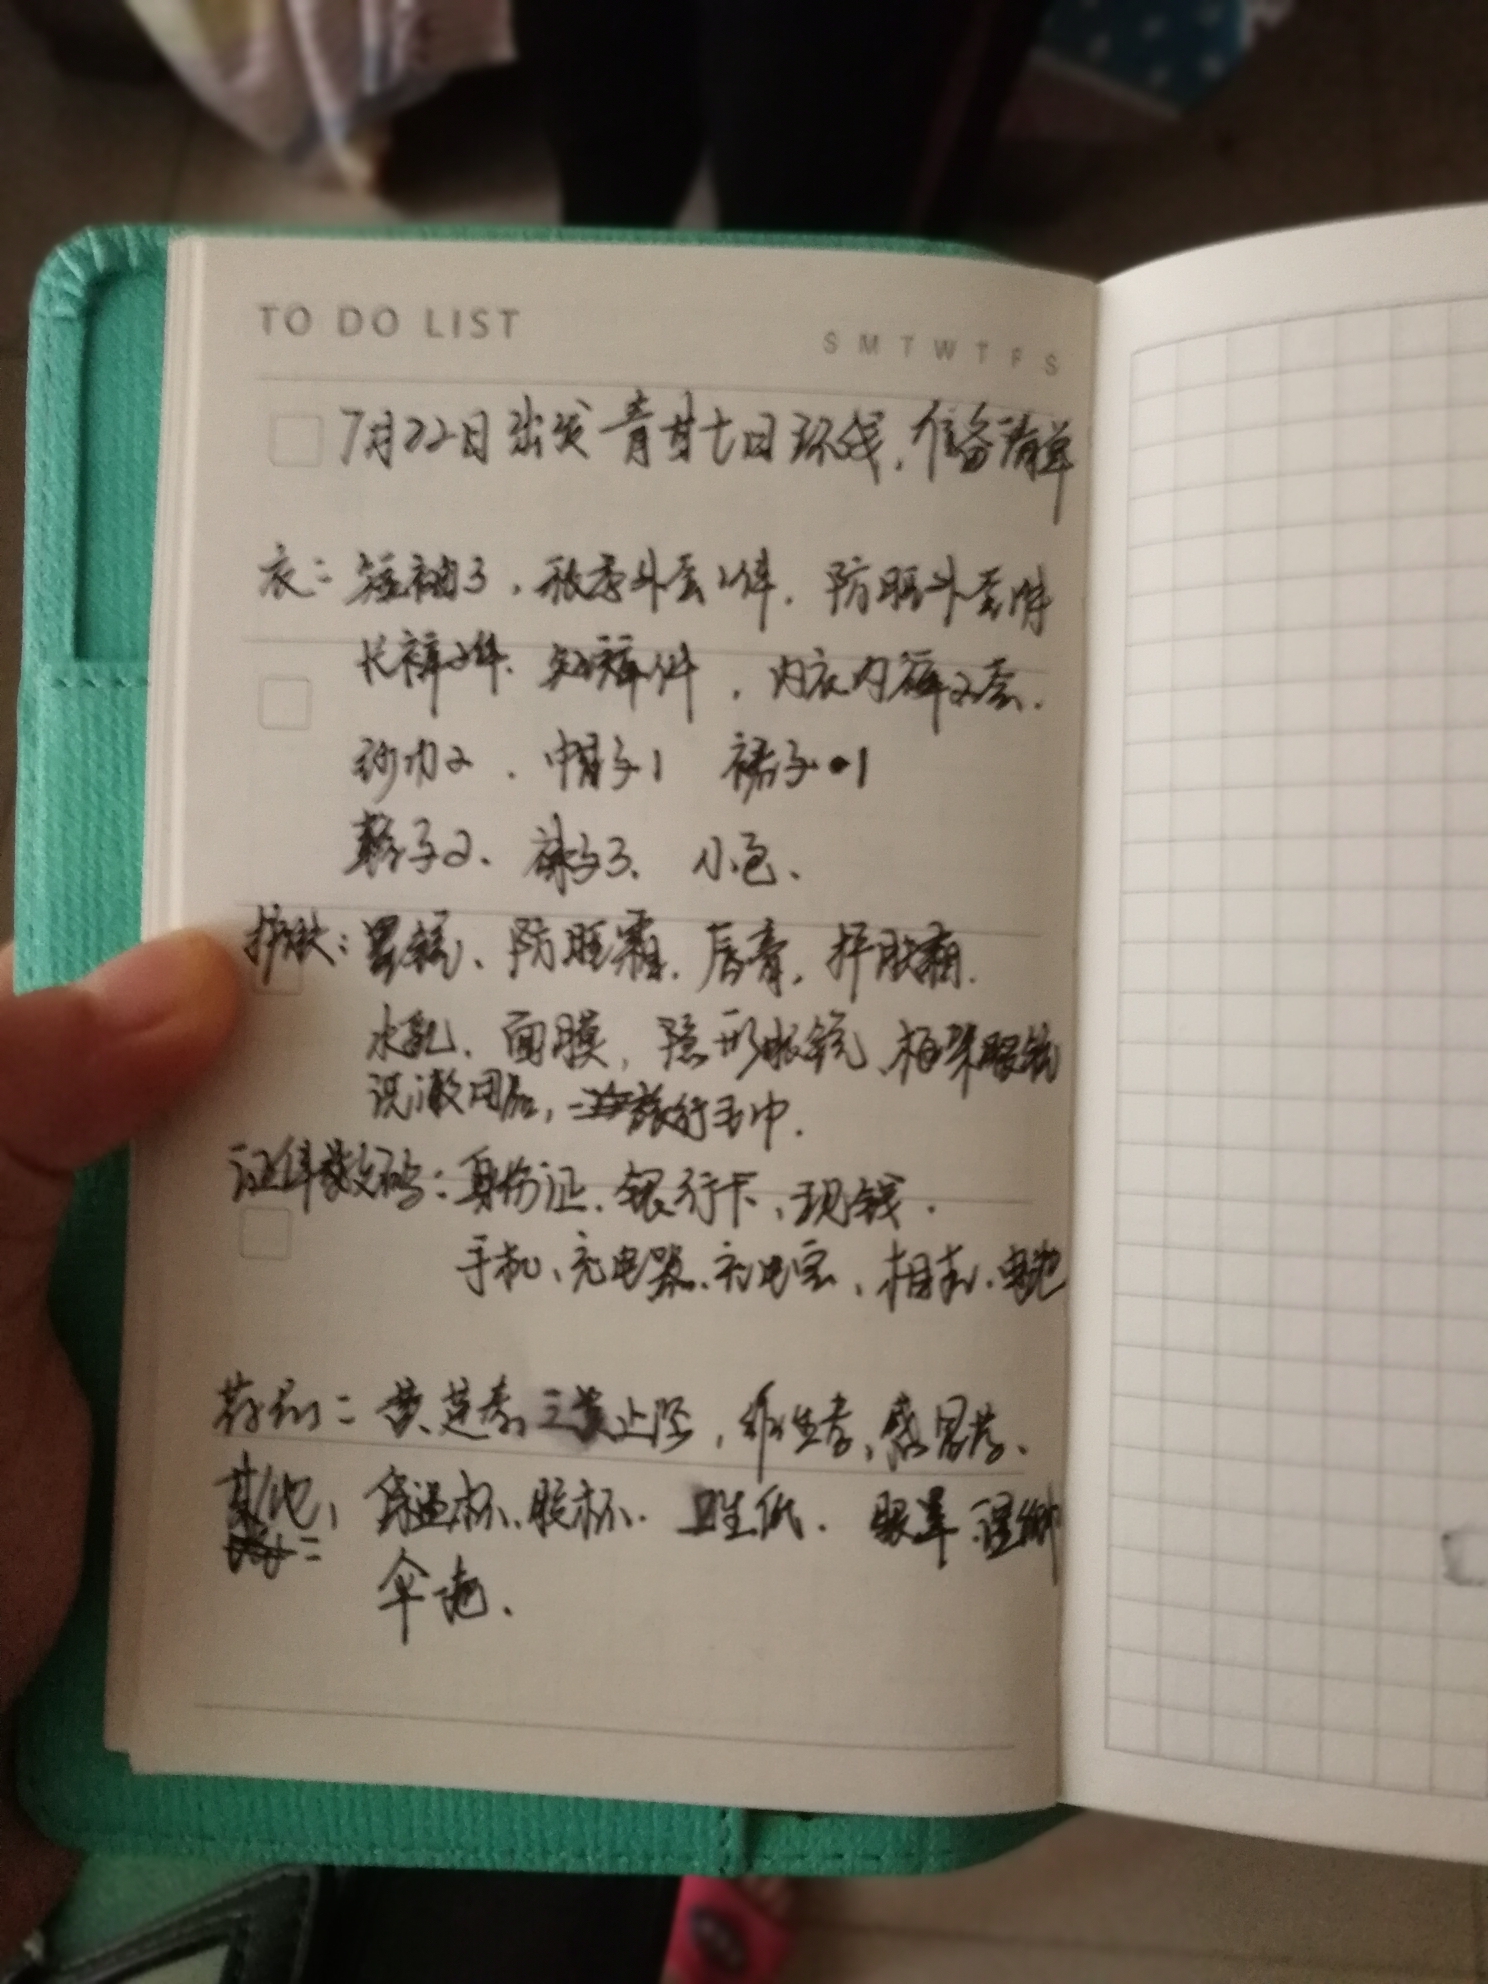 TO DO LIST
S M T W T F S
7月22日出发青甘七日环线，准备清单
衣：短袖3，秋季外套2件，防晒外套1件
长裤2件、短裤1件，内衣内裤2套．
纱巾2．帽子1 裙子1
鞋子2、袜子3、小包、
护肤：墨镜、防晒霜、唇膏，护肤霜．
水乳、面膜，隐形眼镜、框架眼镜
洗漱用品，旅行毛巾．
证件数码：身份证、银行卡、现钱．
手机、充电器、充电宝、相机、电池
药剂：黄芪，维生素、感冒药、
其他，保温杯、胶杯．卫生纸．眼罩、湿纸巾
伞一把．